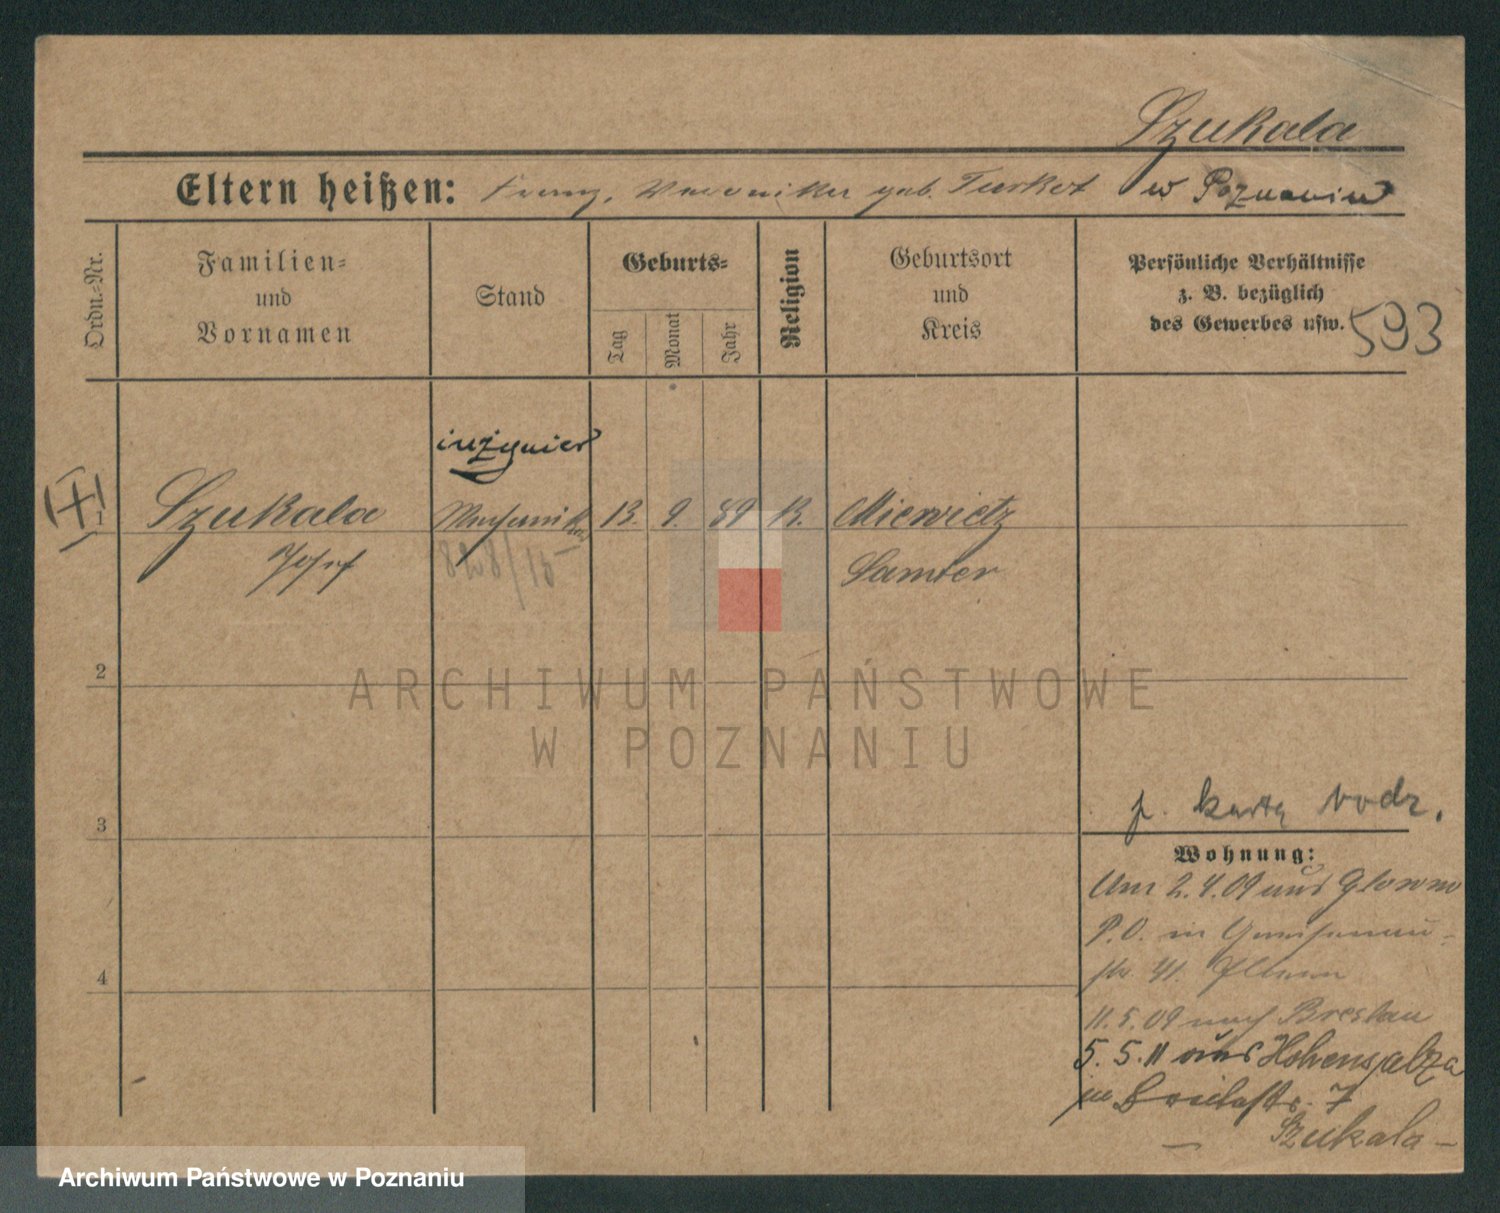 Szukala
Eltern heißen: Franz, Veronika geb. Turkot w Poznaniu
Ordn.-Nr.
Familien-
und
Vornamen
Stand
Geburts-
Tag
Monat
Jahr
Religion
Geburtsort
und
Kreis
Persönliche Verhältnisse
z. B. bezüglich
des Gewerbes usw.
593
inżynier
1
Szukala
Mechanik
13. 9. 89 k.
Mierwietz
Josef
Samter
2
ARCHIWUM PAŃSTWOWE
W POZNANIU
3
p. kartę rodz.
Wohnung:
Am 2.4.09 aus Glowno
P.O. in Gneisenau-
str. 41.
4
11.5.09 nach Breslau
5.5.11 aus Hohensalza
in 7
Szukala
Archiwum Państwowe w Poznaniu